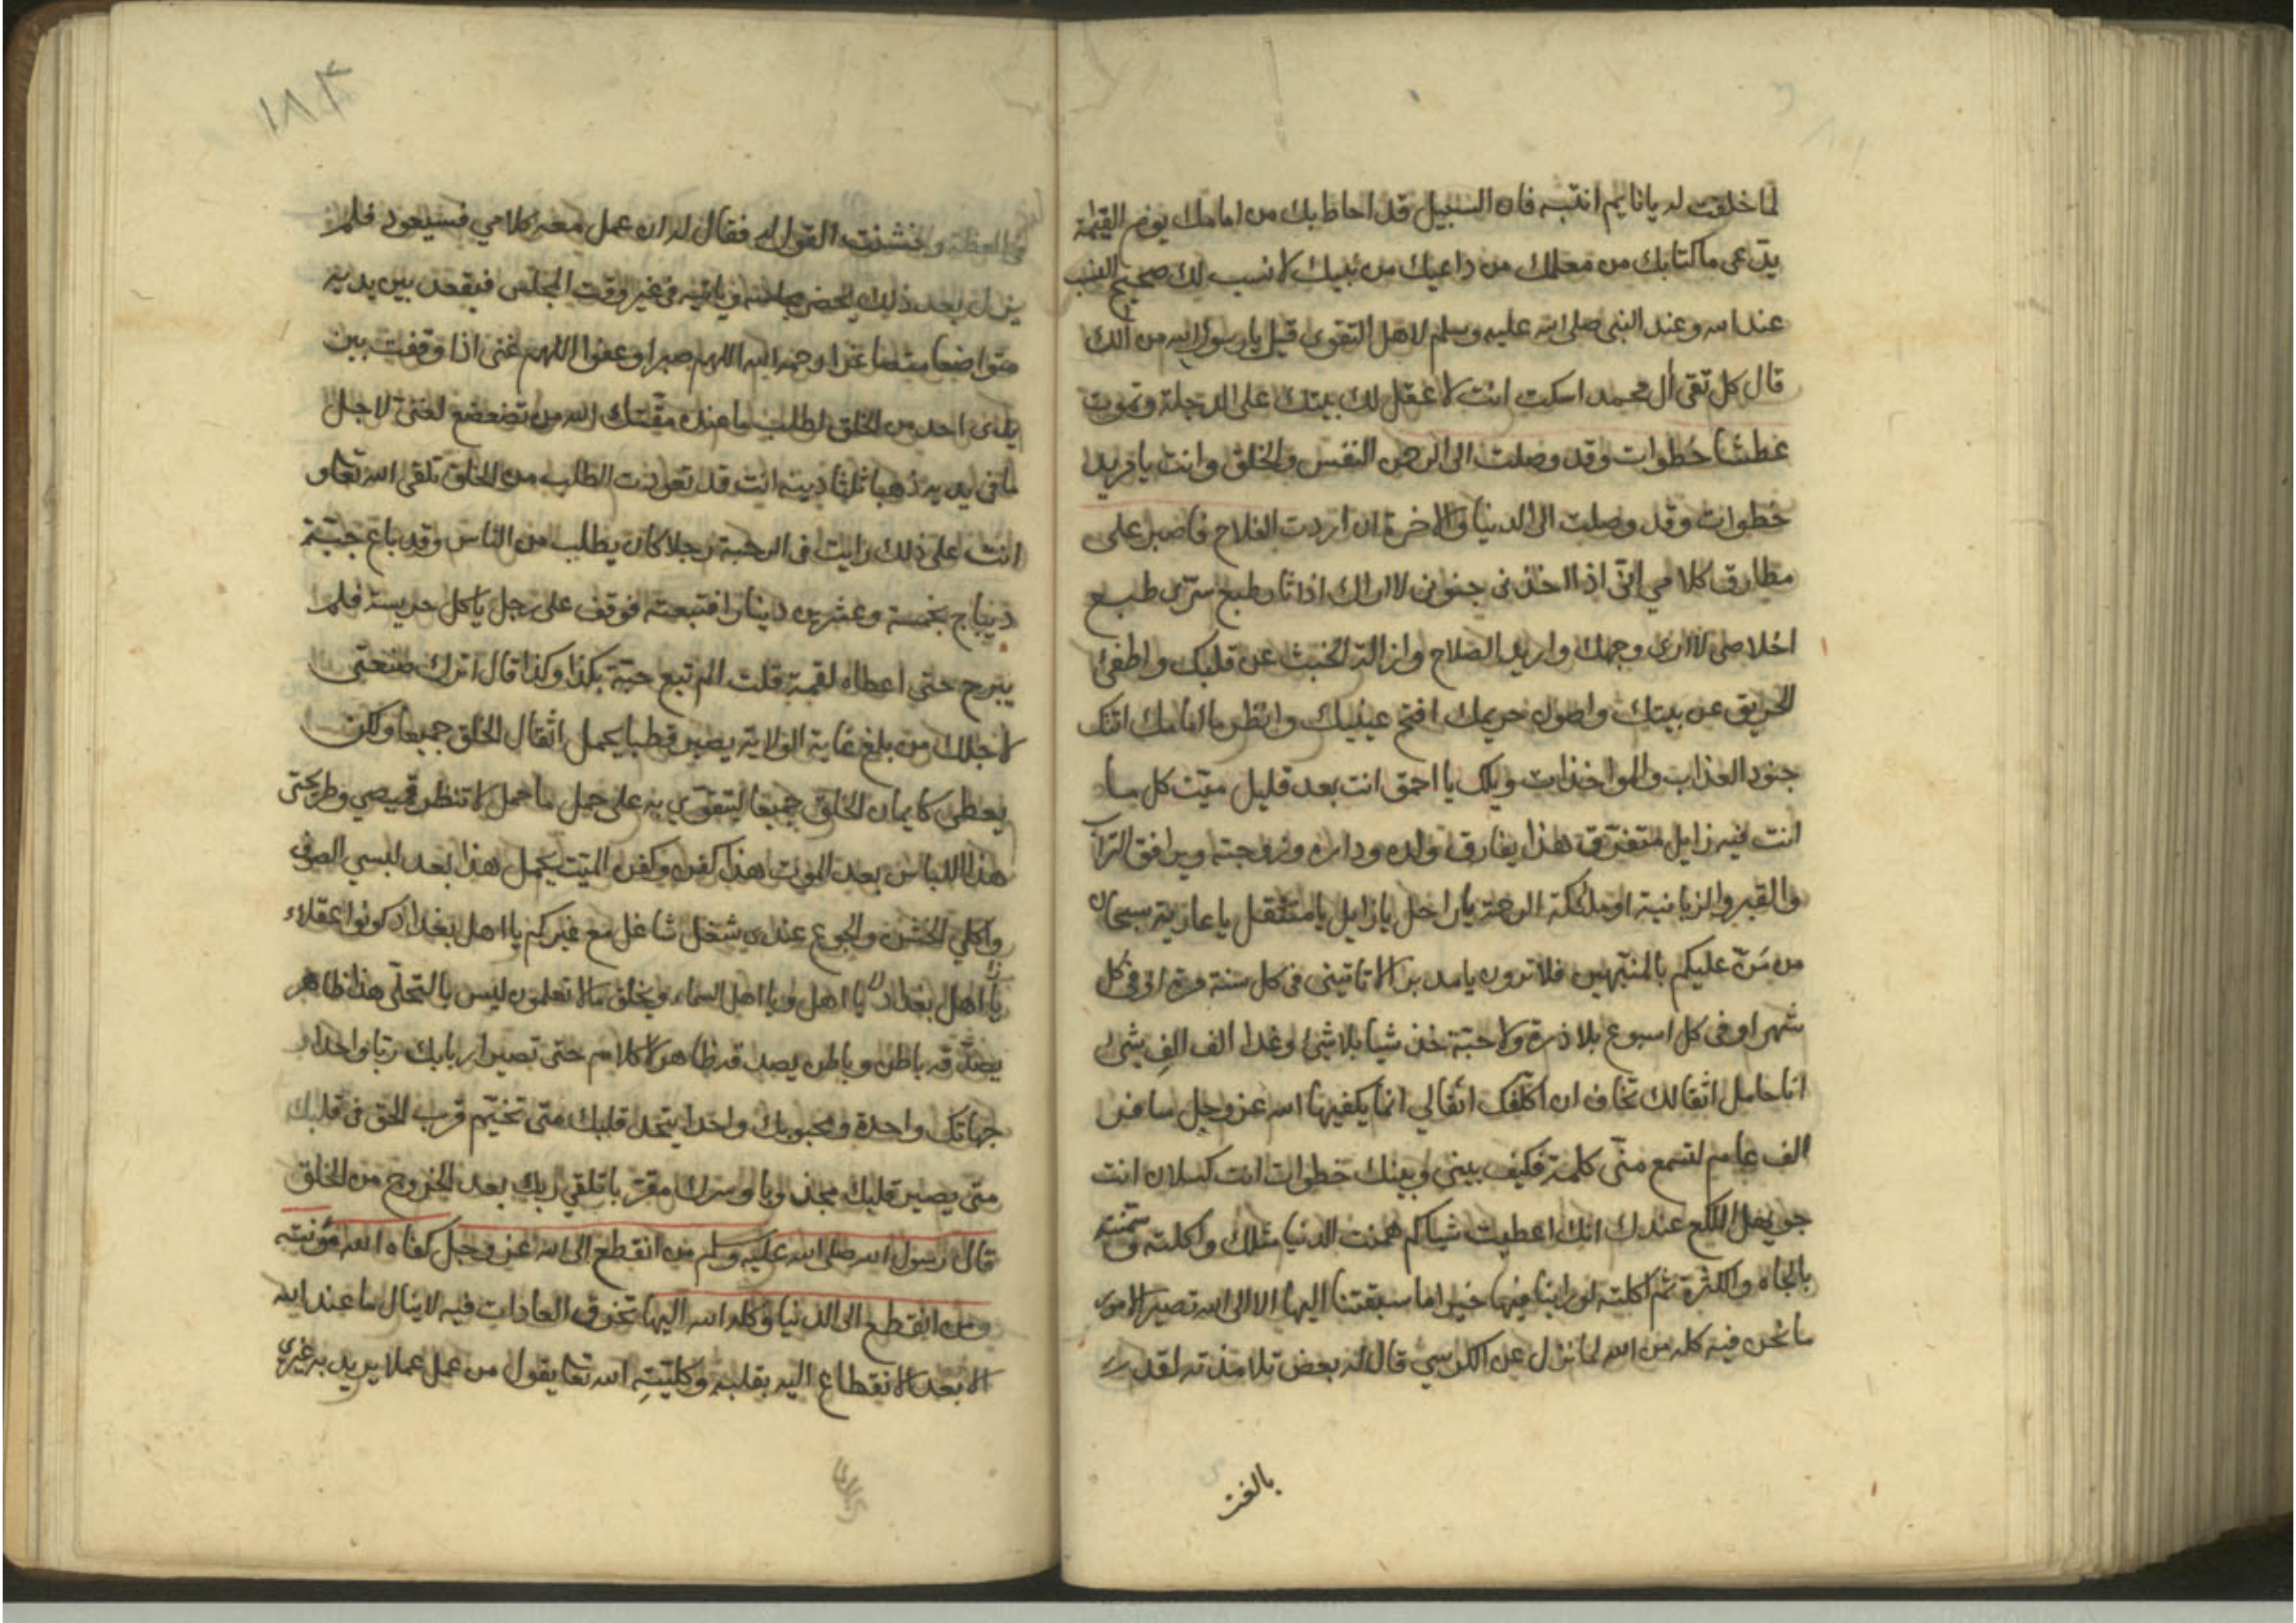 لما خلقت له يا نايم انتبه فان السبيل قد احاط بك من امامك يوم القيمة
يدعى ما كتابك من معلمك من داعيك من نبيك لا نسب لك صحيح النسب
عند الله وعند النبي صلى الله عليه وسلم لاهل التقوى قيل يا رسول الله من آلك
قال كل تقي آل محمد اسكت انت لا عقل لك بيتك على الدجلة وتموت
عطشا خطوات وقد وصلت الى الرحمن النفس والخلق وانت يا مريد
خطوات وقد وصلت الى الدنيا والاخرة ان اردت الفلاح فاصبر على
مطارق كلامي اني اذا اخذني جنوني لا اراك اذا ثار طبع سري طبع
اخلاصي لا ارى وجهك واريد الصلاح وازالة الخبث عن قلبك واطفئ
الحريق عن بيتك واصون حريمك افتح عينيك وانظر ما امامك اتتك
جنود العذاب والمواخذات ويلك يا احمق انت بعد قليل ميت كل ما
انت فيه زايل متفرق هذا يفارق ولده وداره وزوجته ويرافق التراب
والقبر والزبانية او ملائكة الرحمة يا راحل يا زايل يا منتقل يا عارية سبحان
من من عليكم بالمنبهين فلا ترون يا مدبر الا تاتيني في كل سنة مرة او في كل
شهر او في كل اسبوع بلا ذرة ولا حبة خذ شيا بلا شئ وغدا الف الف شئ
انا حامل اثقالك تخاف ان اكلفك اثقالي انما يكفيها الله عز وجل سافر
الف عام لتسمع مني كلمة فكيف بيني وبينك خطوات انت كسلان انت
عندك انك اعطيت شيا كم سمنت الدنيا مثلك واكلته سمنته
بالجاه والكثرة ثم اكلته لو راينا فيها خيرا ما سبقتنا اليها الا الى الله تصير الامور
ما نحن فيه كله من الله لما نزل عن الكرسي قال له بعض تلامذته لقد
بالغت
في العظة وخشنت القول له فقال له ان عمل معه كلامي فسيعود فلم
يزل بعد ذلك يحضر مجلسه وياتيه في غير وقت المجلس فيقعد بين يديه
متواضعا متصاغرا رحمه الله اللهم صبرا وعفوا اللهم غنى اذا وقفت بين
يدى احد من الخلق لطلب ما عنده مقتك الله من تضعضع لغني لاجل
ما في يديه ذهب ثلثا دينه انت قد تعودت الطلب من الخلق تلقى الله تعا و
انت على ذلك رايت في الرحبة رجلا كان يطلب من الناس وقد باع جبة
ديباج بخمسة وعشرين دينارا فتبعته فوقف على رجل ياكل هريسة فلم
يبرح حتى اعطاه لقمة قلت الم تبع جبة بكذا وكذا قال اترك صنعتي
لاجلك من بلغ غاية الولاية يصير قطبا يحمل اثقال الخلق جميعا ولكن
يعطى كايمان الخلق جميعا ليتقوى به على حمل ما حمل لا تنظر قميصي وطرحتي
هذا اللباس بعد الموت هذا كفن وكفن الميت يحمل هذا بعد لبسي الصوف
واكلي الخشن والجوع عندي شغل شاغل مع غيركم يا اهل بغداد كونوا عقلاء
يا اهل بغداد يا اهل ويا اهل السماء ويخلق ما لا تعلمون ليس بالتحلي هذا ظاهر
يصدقه باطن وباطن يصدقه ظاهر لا كلام حتى تصير اربابك ربا واحدا
جهاتك واحدة ومحبوبك واحدا يتحد قلبك متى تخيم قرب الحق في قلبك
متى يصير قلبك مجذوبا وسرك مقربا تلقي ربك بعد الخروج من الخلق
قال رسول الله صلى الله عليه وسلم من انقطع الى الله عز وجل كفاه الله مؤنته
ومن انقطع الى الدنيا وكله الله اليها تخرق العادات فيه لا ينال ما عند الله
الا بعد الانقطاع اليه بقلبه وكليته الله تعا يقول من عمل عملا يريد به غيري